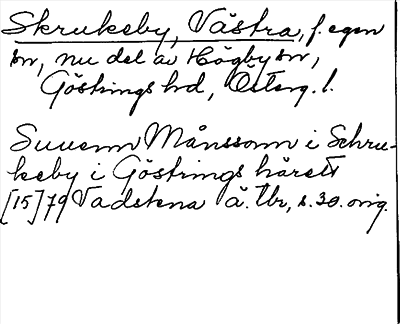 Skrukeby, Västra, f. egen
sn, nu del av Högby sn,
Göstrings hd, Österg. l.
Suuenn Månssonn i Schru-
keby i Göstrings härett
[15]79 Vadstena ä. tbr, s. 30. orig.